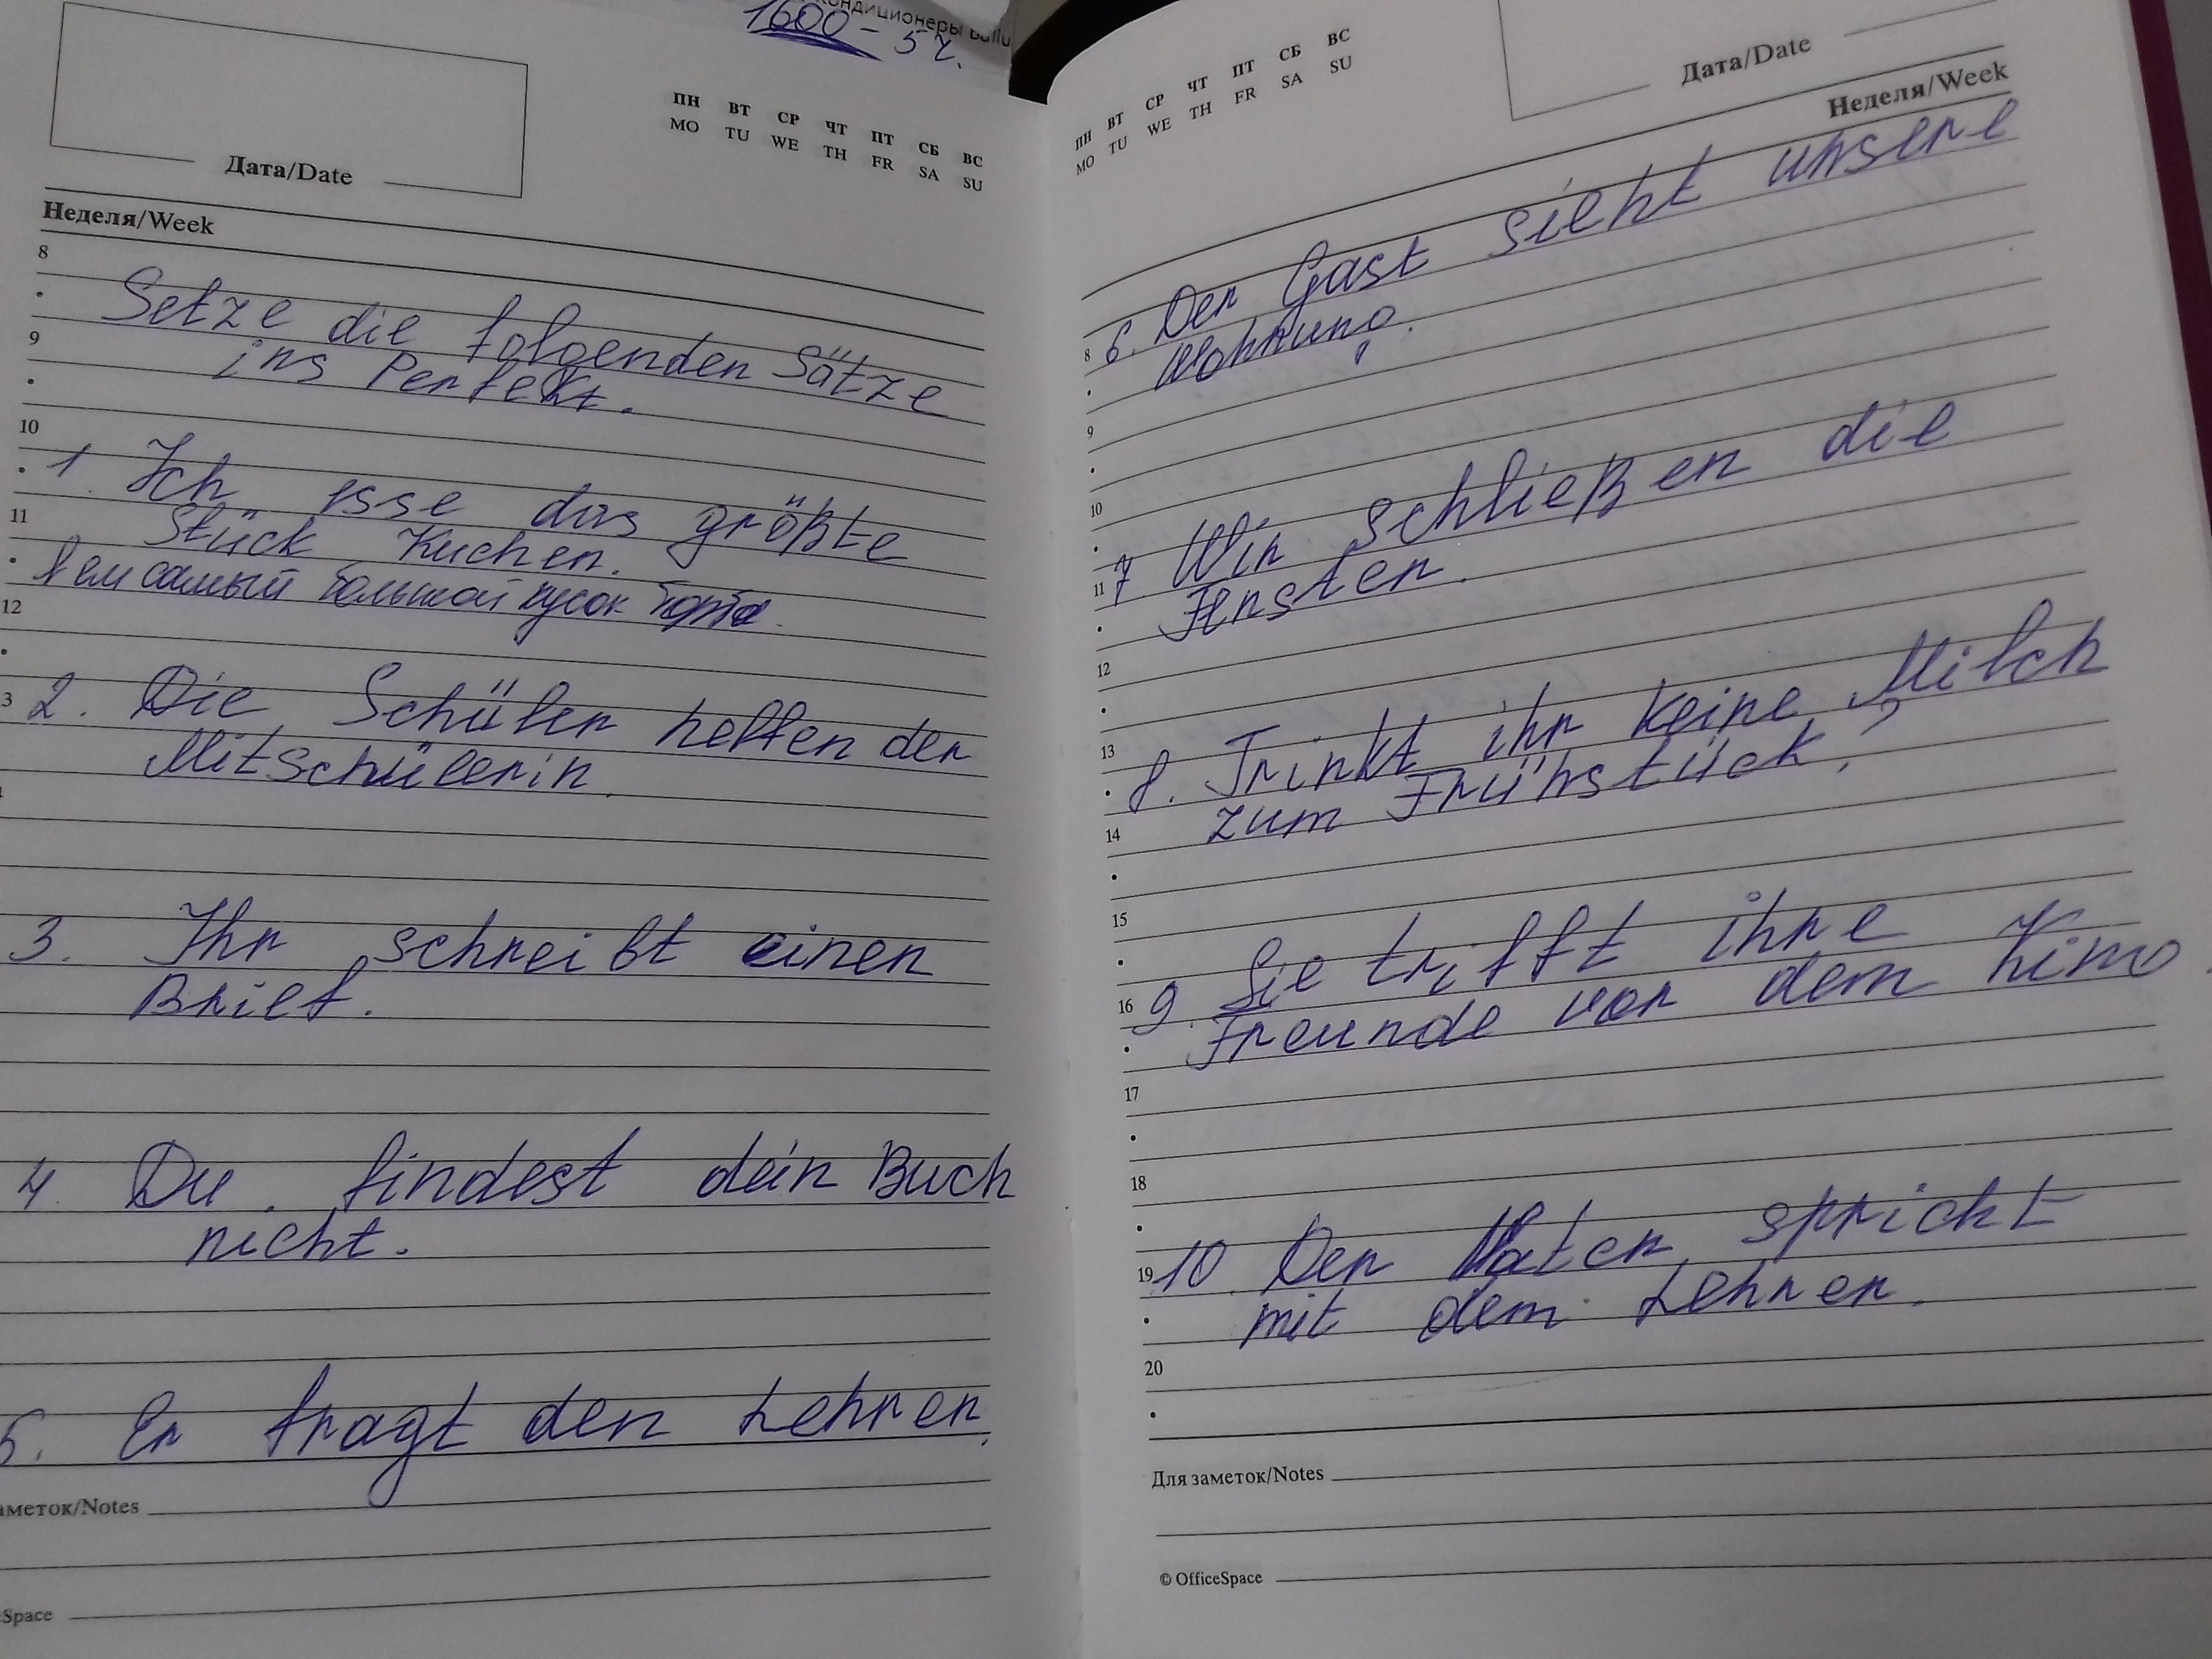 кондиционеры Ballu
1600 - 5 ч.
Дата/Date
ПН ВТ СР ЧТ ПТ СБ ВС
MO TU WE TH FR SA SU
Неделя/Week
8
Setze die folgenden Sätze
9
ins Perfekt.
10
1. Ich esse das größte
11
Stück Kuchen.
Я ем самый большой кусок торта.
12
2. Die Schüler helfen der
Mitschülerin.
3. Ihr schreibt einen
Brief.
4. Du findest dein Buch
nicht.
5. Er fragt den Lehrer.
заметок/Notes
Space
Дата/Date
ПН ВТ СР ЧТ ПТ СБ ВС
MO TU WE TH FR SA SU
Неделя/Week
6. Der Gast sieht unsere
8
Wohnung.
9
10
7 Wir schließen die
11
Fenster.
12
8. Trinkt ihr keine Milch
13
zum Frühstück?
14
15
9. Sie trifft ihre
16
Freunde vor dem Kino.
17
18
10. Der Vater spricht
19
mit dem Lehrer.
20
Для заметок/Notes
© OfficeSpace